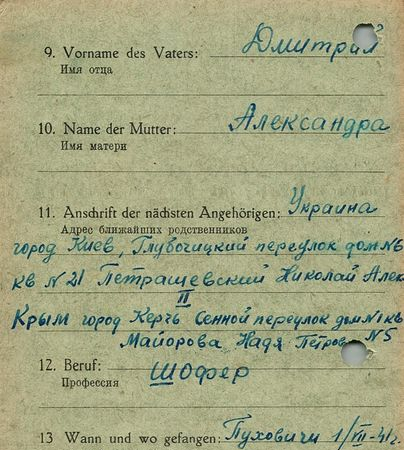 9. Vorname des Vaters: Дмитрий
Имя отца
10. Name der Mutter: Александра
Имя матери
11. Anschrift der nächsten Angehörigen: Украина
Адрес ближайших родственников
город Киев, Глубочицкий переулок дом №6
кв № 21 Петрашевский Николай Алек
II
Крым город Керчь Сенной переулок дом №1 кв
№5
Майорова Надя Петров
12. Beruf: Шофер
Профессия
13 Wann und wo gefangen: Пуховичи 1/VII-41г.